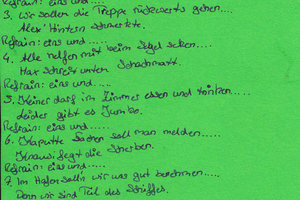 Refrain: eins und....
3. Wir sollen die Treppe rückwerts gehen....
Alex' Hintern schmerzte.
Refrain: eins und....
4. Alle helfen mit beim Segel setzen....
Max schreit unten Schachmatt.
Refrain: eins und.....
5. Keiner darf im Zimmer essen und trinken.....
Leider gibt es Jumbo.
Refrain: eins und......
6. Kaputte Sachen soll man melden.....
fegt die Scherben.
Refrain: eins und....
7. Im Hafen soll'n wir uns gut benehmen.....
Denn wir sind Teil des Schiffes.